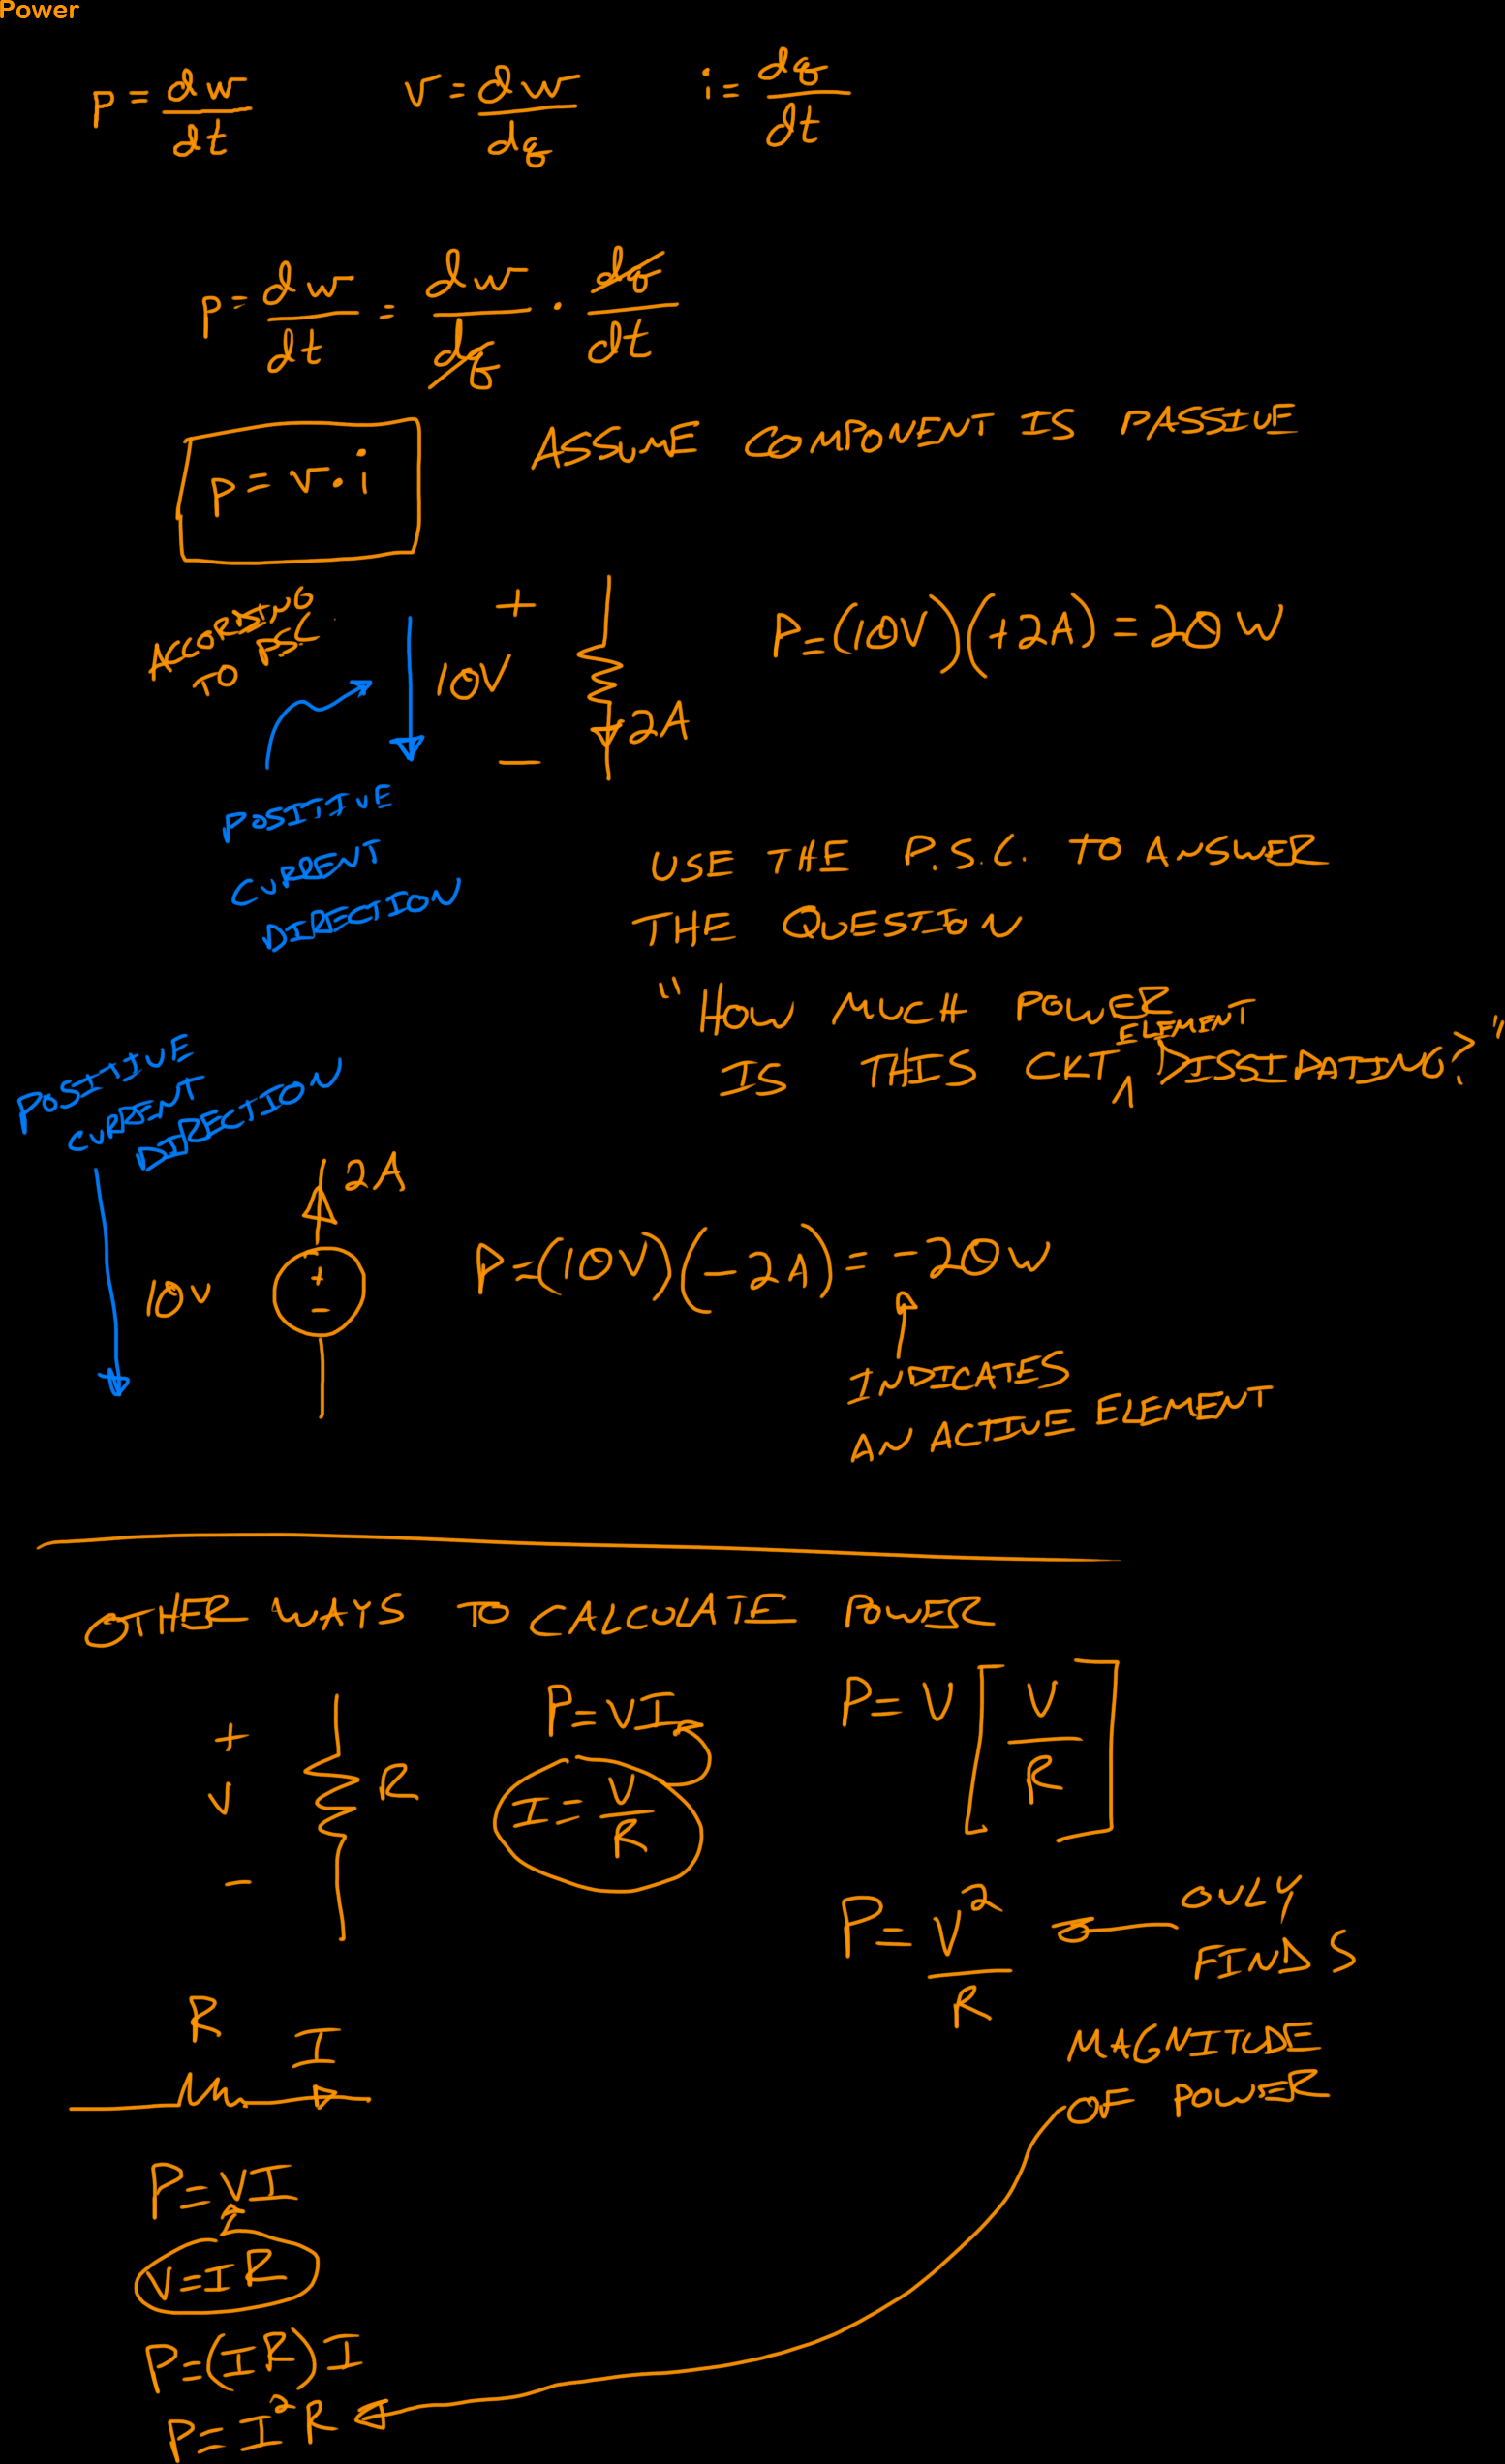 Power
p = dw/dt    v = dw/dq    i = dq/dt
p = dw/dt = dw/dq · dq/dt
ASSUME COMPONENT IS PASSIVE
p = v · i
ACCORDING
TO PSC
+
10V
2A
−
P = (10V)(+2A) = 20 W
POSITIVE
CURRENT
DIRECTION
USE THE P.S.C. TO ANSWER
THE QUESTION
"HOW MUCH POWER
IS THIS CKT ELEMENT DISSIPATING?"
POSITIVE
CURRENT
DIRECTION
2A
10V
+
−
P = (10V)(−2A) = −20W
INDICATES
AN ACTIVE ELEMENT
OTHER WAYS TO CALCULATE POWER
+
V
−
R
P = VI
I = V/R
P = V[V/R]
P = V²/R
ONLY
FINDS
MAGNITUDE
OF POWER
R
I
P = VI
V = IR
P = (IR)I
P = I²R